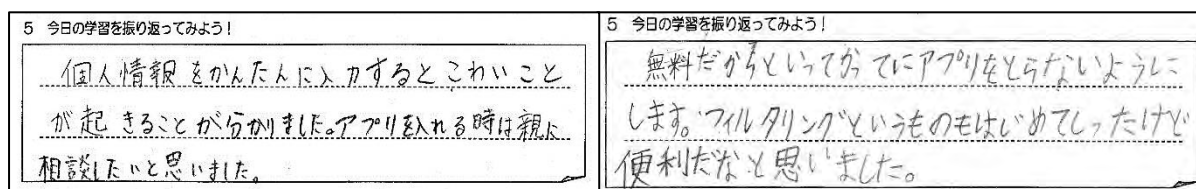 5 今日の学習を振り返ってみよう！
個人情報をかんたんに入力するとこわいこと
が起きることが分かりました。アプリを入れる時は親に
相談したいと思いました。
5 今日の学習を振り返ってみよう！
無料だからといってかってにアプリをとらないように
します。フィルタリングというものもはじめてしったけど
便利だなと思いました。